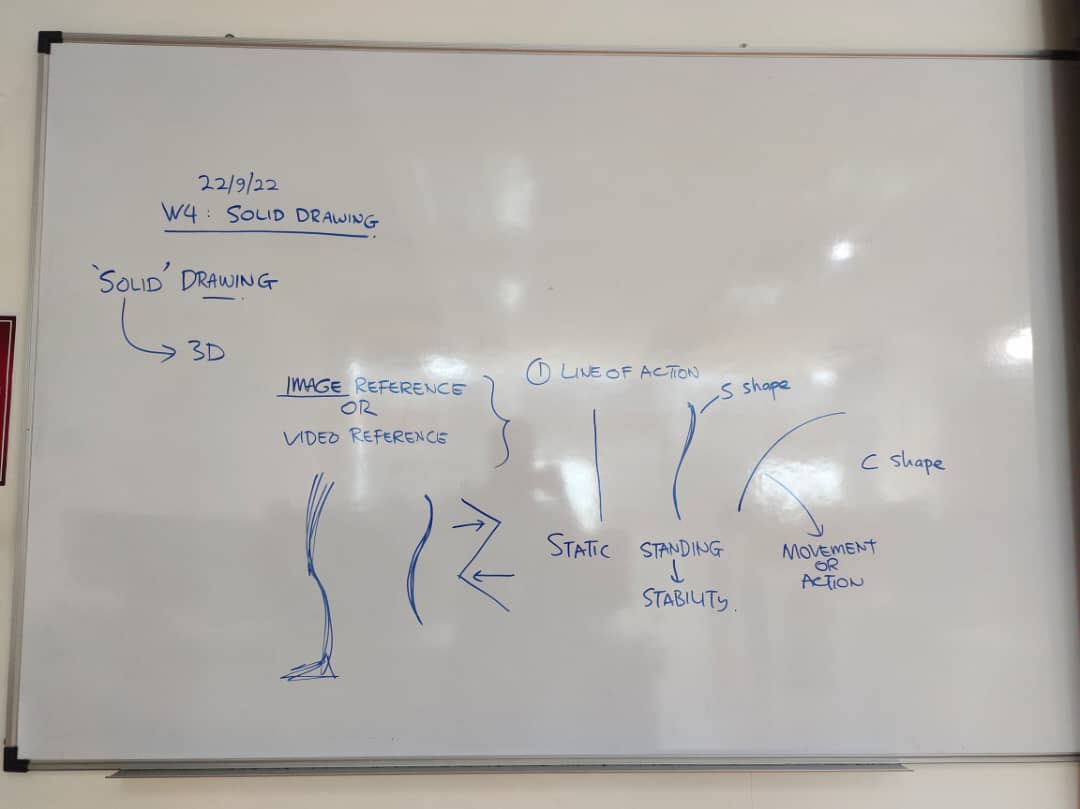 22/9/22
W4: SOLID DRAWING.
'SOLID' DRAWING.
3D
IMAGE REFERENCE
OR
VIDEO REFERENCE
① LINE OF ACTION
S shape
C shape
STATIC
STANDING
STABILITY.
MOVEMENT
OR
ACTION